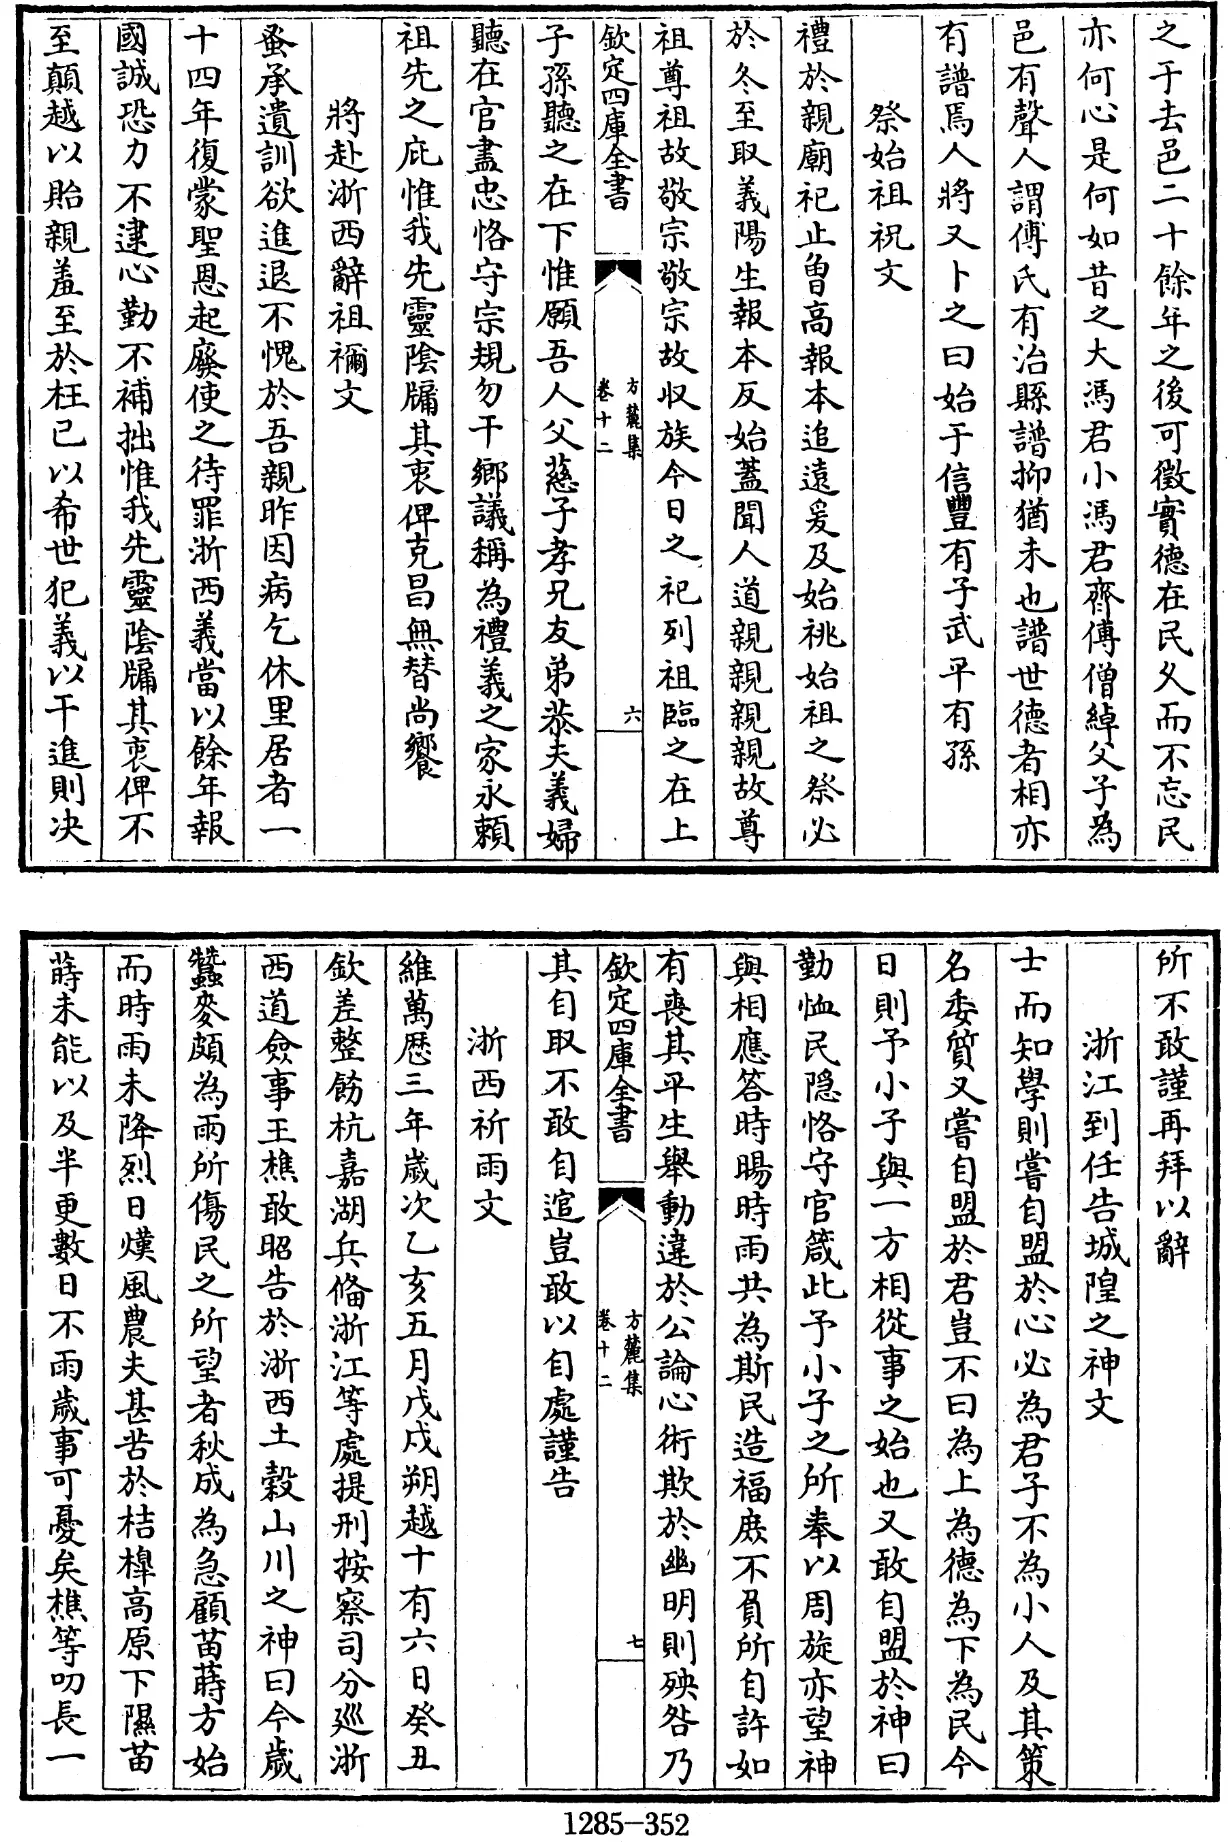 之于去邑二十餘年之後可徵實德在民久而不忘民
亦何心是何如昔之大馮君小馮君齊傅僧綽父子為
邑有聲人謂傅氏有治縣譜抑猶未也譜世德者相亦
有譜焉人將又卜之曰始于信豐有子武平有孫
祭始祖祝文
禮於親廟祀止曾高報本追遠爰及始祧始祖之祭必
於冬至取義陽生報本反始蓋聞人道親親親親故尊
祖尊祖故敬宗敬宗故収族今日之祀列祖臨之在上
欽定四庫全書
方麓集
卷十二
六
子孫聽之在下惟願吾人父慈子孝兄友弟恭夫義婦
聽在官盡忠恪守宗規勿干鄉議稱為禮義之家永賴
祖先之庇惟我先靈陰牖其衷俾克昌無替尚饗
將赴浙西辭祖禰文
蚤承遺訓欲進退不愧於吾親昨因病乞休里居者一
十四年復蒙聖恩起廢使之待罪浙西義當以餘年報
國誠恐力不逮心勤不補拙惟我先靈陰牖其衷俾不
至顛越以貽親羞至於枉已以希世犯義以干進則决
所不敢謹再拜以辭
浙江到任告城隍之神文
士而知學則嘗自盟於心必為君子不為小人及其策
名委質又嘗自盟於君豈不曰為上為德為下為民今
日則予小子與一方相從事之始也又敢自盟於神曰
勤恤民隐恪守官箴此予小子之所奉以周旋亦望神
與相應答時暘時雨共為斯民造福庶不負所自許如
有喪其平生舉動違於公論心術欺於幽明則殃咎乃
欽定四庫全書
方麓集
卷十二
七
其自取不敢自逭豈敢以自處謹告
浙西祈雨文
維萬歷三年歲次乙亥五月戊戌朔越十有六日癸丑
欽差整飭杭嘉湖兵備浙江等處提刑按察司分廵浙
西道僉事王樵敢昭告於浙西土穀山川之神曰今歲
蠶麥頗為雨所傷民之所望者秋成為急顧苗蒔方始
而時雨未降烈日熯風農夫甚苦於桔槹高原下隰苗
蒔未能以及半更數日不雨歲事可憂矣樵等叨長一
1285-352